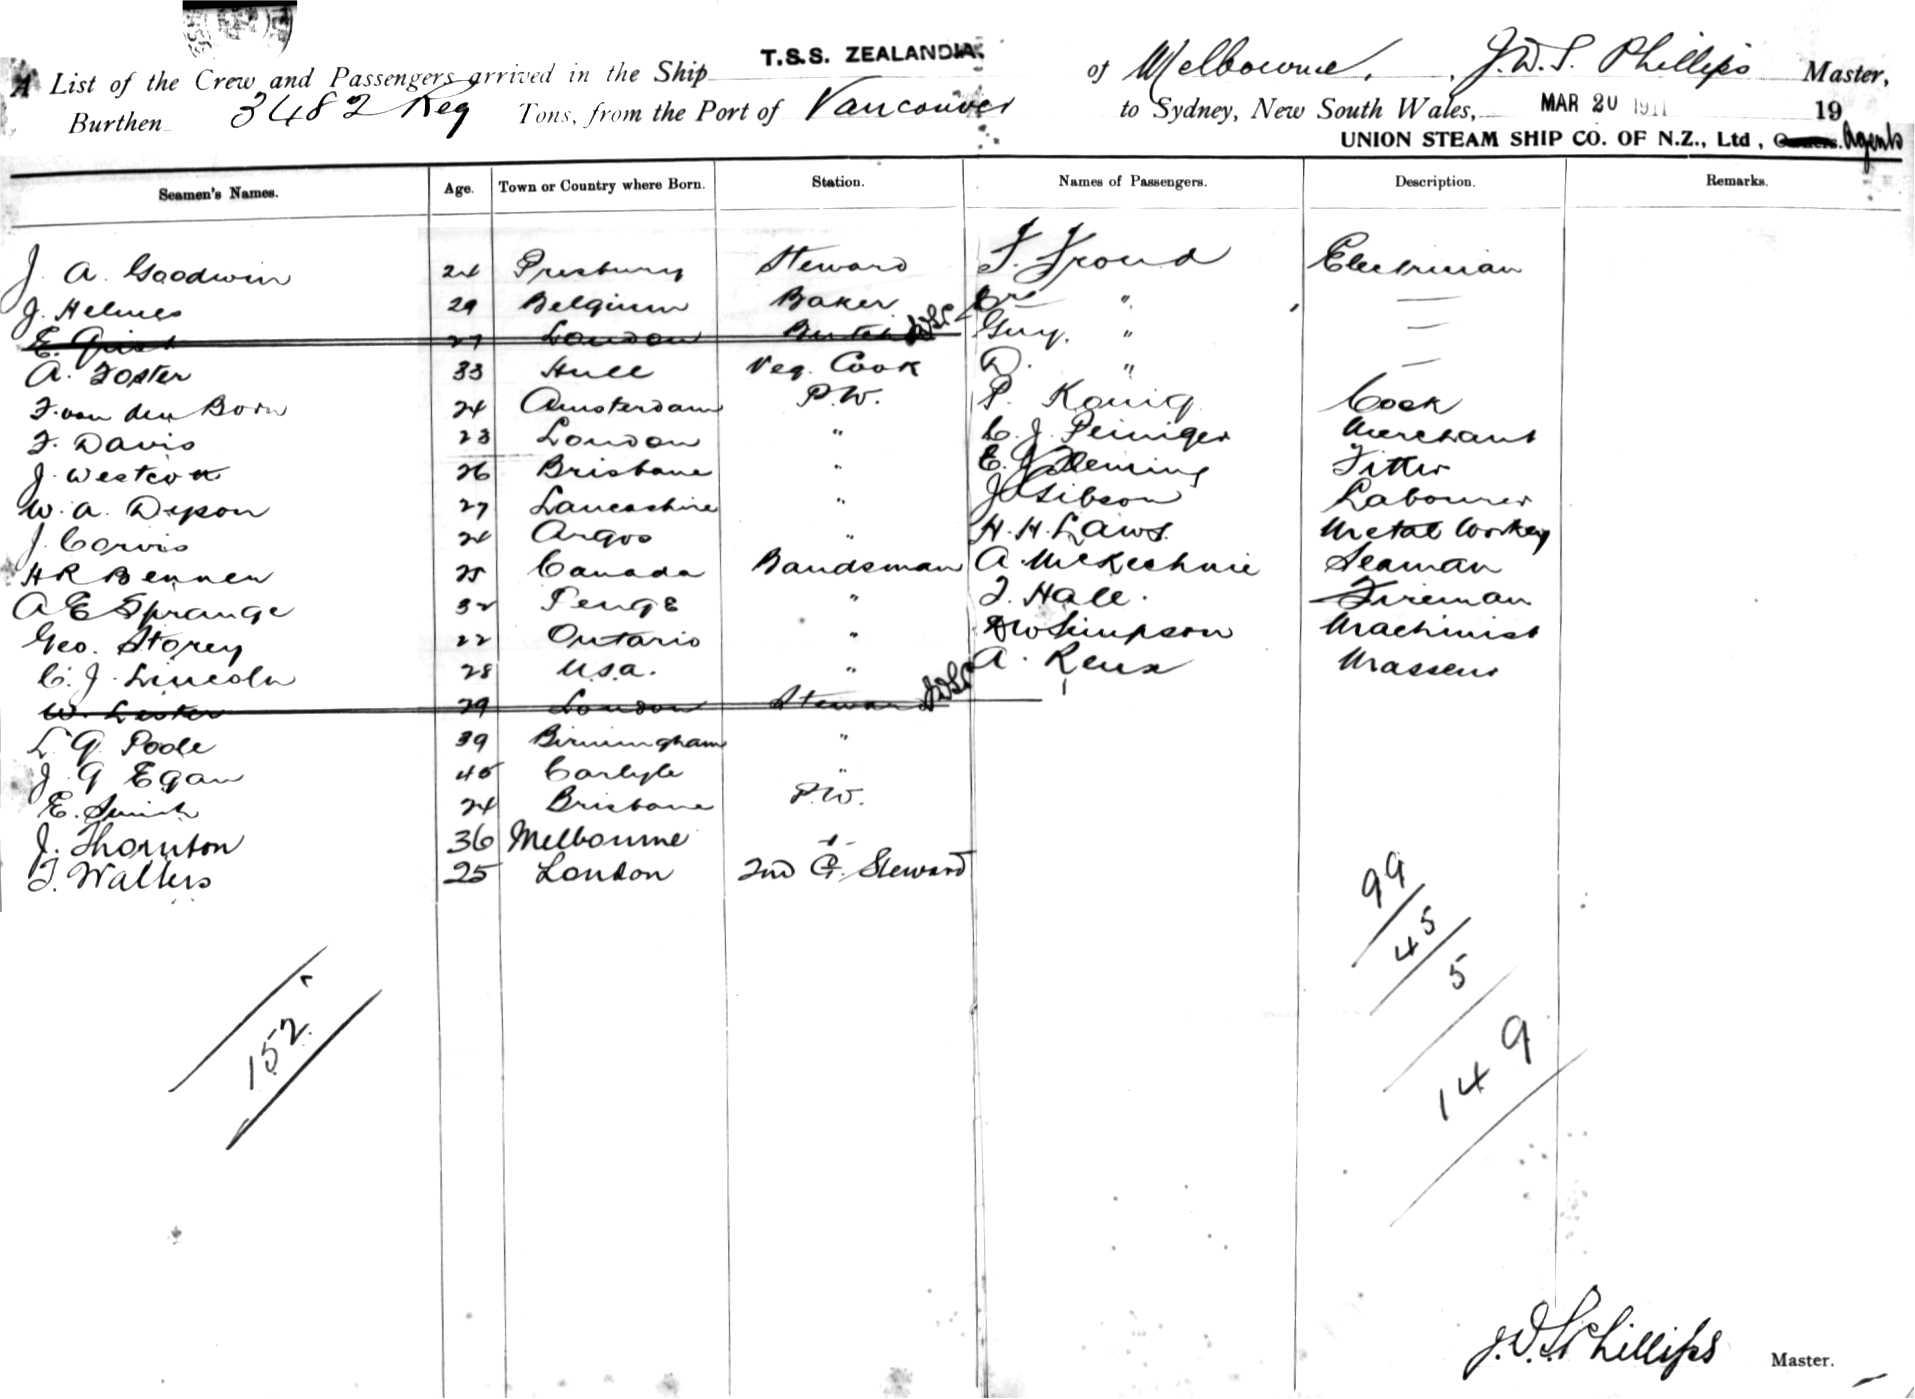 T.S.S. ZEALANDIA.
A List of the Crew and Passengers arrived in the Ship of Melbourne, J.D.S. Phillips Master,
Burthen 3482 Reg Tons, from the Port of Vancouver to Sydney, New South Wales, MAR 20 1911 19
UNION STEAM SHIP CO. OF N.Z., Ltd, Owners. Agents
Seamen's Names. Age. Town or Country where Born. Station. Names of Passengers. Description. Remarks.
J. A. Goodwin 24 Presbury Steward F. Froud Electrician
J. Helmes 29 Belgium Baker Mrs " —
E. Grist 27 London Butcher Guy. " —
A. Foster 33 Hull Veg. Cook D. " —
F. van den Born 24 Amsterdam P.W. P. Konig Cook
F. Davis 23 London " C. J. Peiniger Merchant
J. Westcott 26 Brisbane " E. J. Fleming Fitter
W. A. Dyson 27 Lancashire " J. Gibson Labourer
J. Corvis 24 Argos " H. H. Laws. Metal Worker
H R Bennen 25 Canada Bandsman A. McKechnie Seaman
A E Sprange 32 Penge " F. Hall. Fireman
Geo. Storey 22 Ontario " Simpson Machinist
C. J. Lincoln 28 U.S.A. " A. Reux Masseur
W. Lester 29 London Steward
L. G. Poole 39 Birmingham "
J. G Egan 40 Carlyle "
E. Smith 24 Brisbane P.W.
J. Thornton 36 Melbourne "
F. Walters 25 London 2nd G. Steward
99
45
5
152
149
J.D.S. Phillips Master.